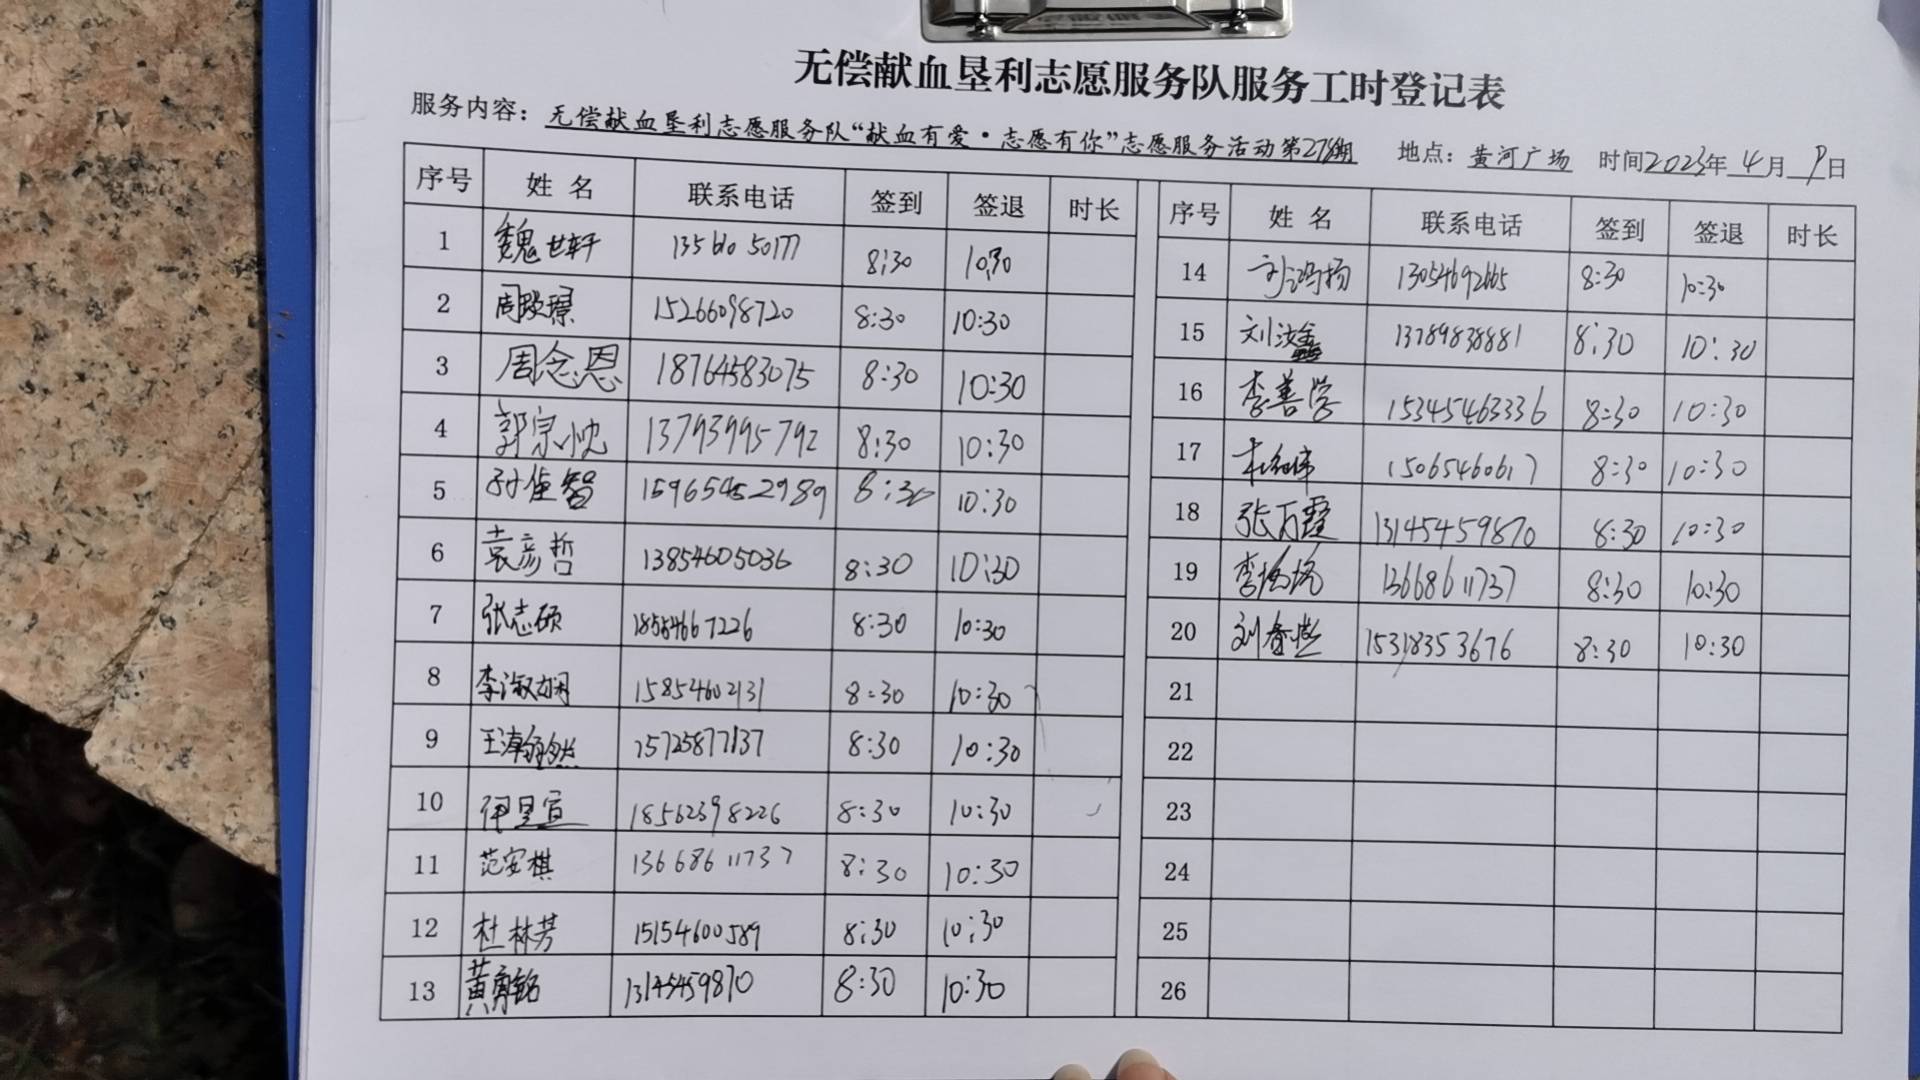 无偿献血垦利志愿服务队服务工时登记表
服务内容：无偿献血垦利志愿服务队“献血有爱·志愿有你”志愿服务活动第278期 地点：黄河广场 时间2023年4月9日
序号 姓名 联系电话 签到 签退 时长
1 魏世轩 13561050177 8:30 10:30
2 周 15266098720 8:30 10:30
3 周念恩 18764583075 8:30 10:30
4 郭宗忱 13793995792 8:30 10:30
5 孙佳智 15965452989 8:30 10:30
6 袁彦哲 13854605036 8:30 10:30
7 张志硕 18554667226 8:30 10:30
8 李淑娴 15854602131 8:30 10:30
9 王瀚然 15725877137 8:30 10:30
10 伊昱宣 18562398226 8:30 10:30
11 范安棋 13668611737 8:30 10:30
12 杜林芳 15154600589 8:30 10:30
13 黄勇铭 13145459870 8:30 10:30
序号 姓名 联系电话 签到 签退 时长
14 刘鸿扬 13054692665 8:30 10:30
15 刘鑫 13789838881 8:30 10:30
16 李善学 15345463336 8:30 10:30
17 15065460617 8:30 10:30
18 张万霞 13145459870 8:30 10:30
19 李 13668611737 8:30 10:30
20 刘春 15318353676 8:30 10:30
21
22
23
24
25
26